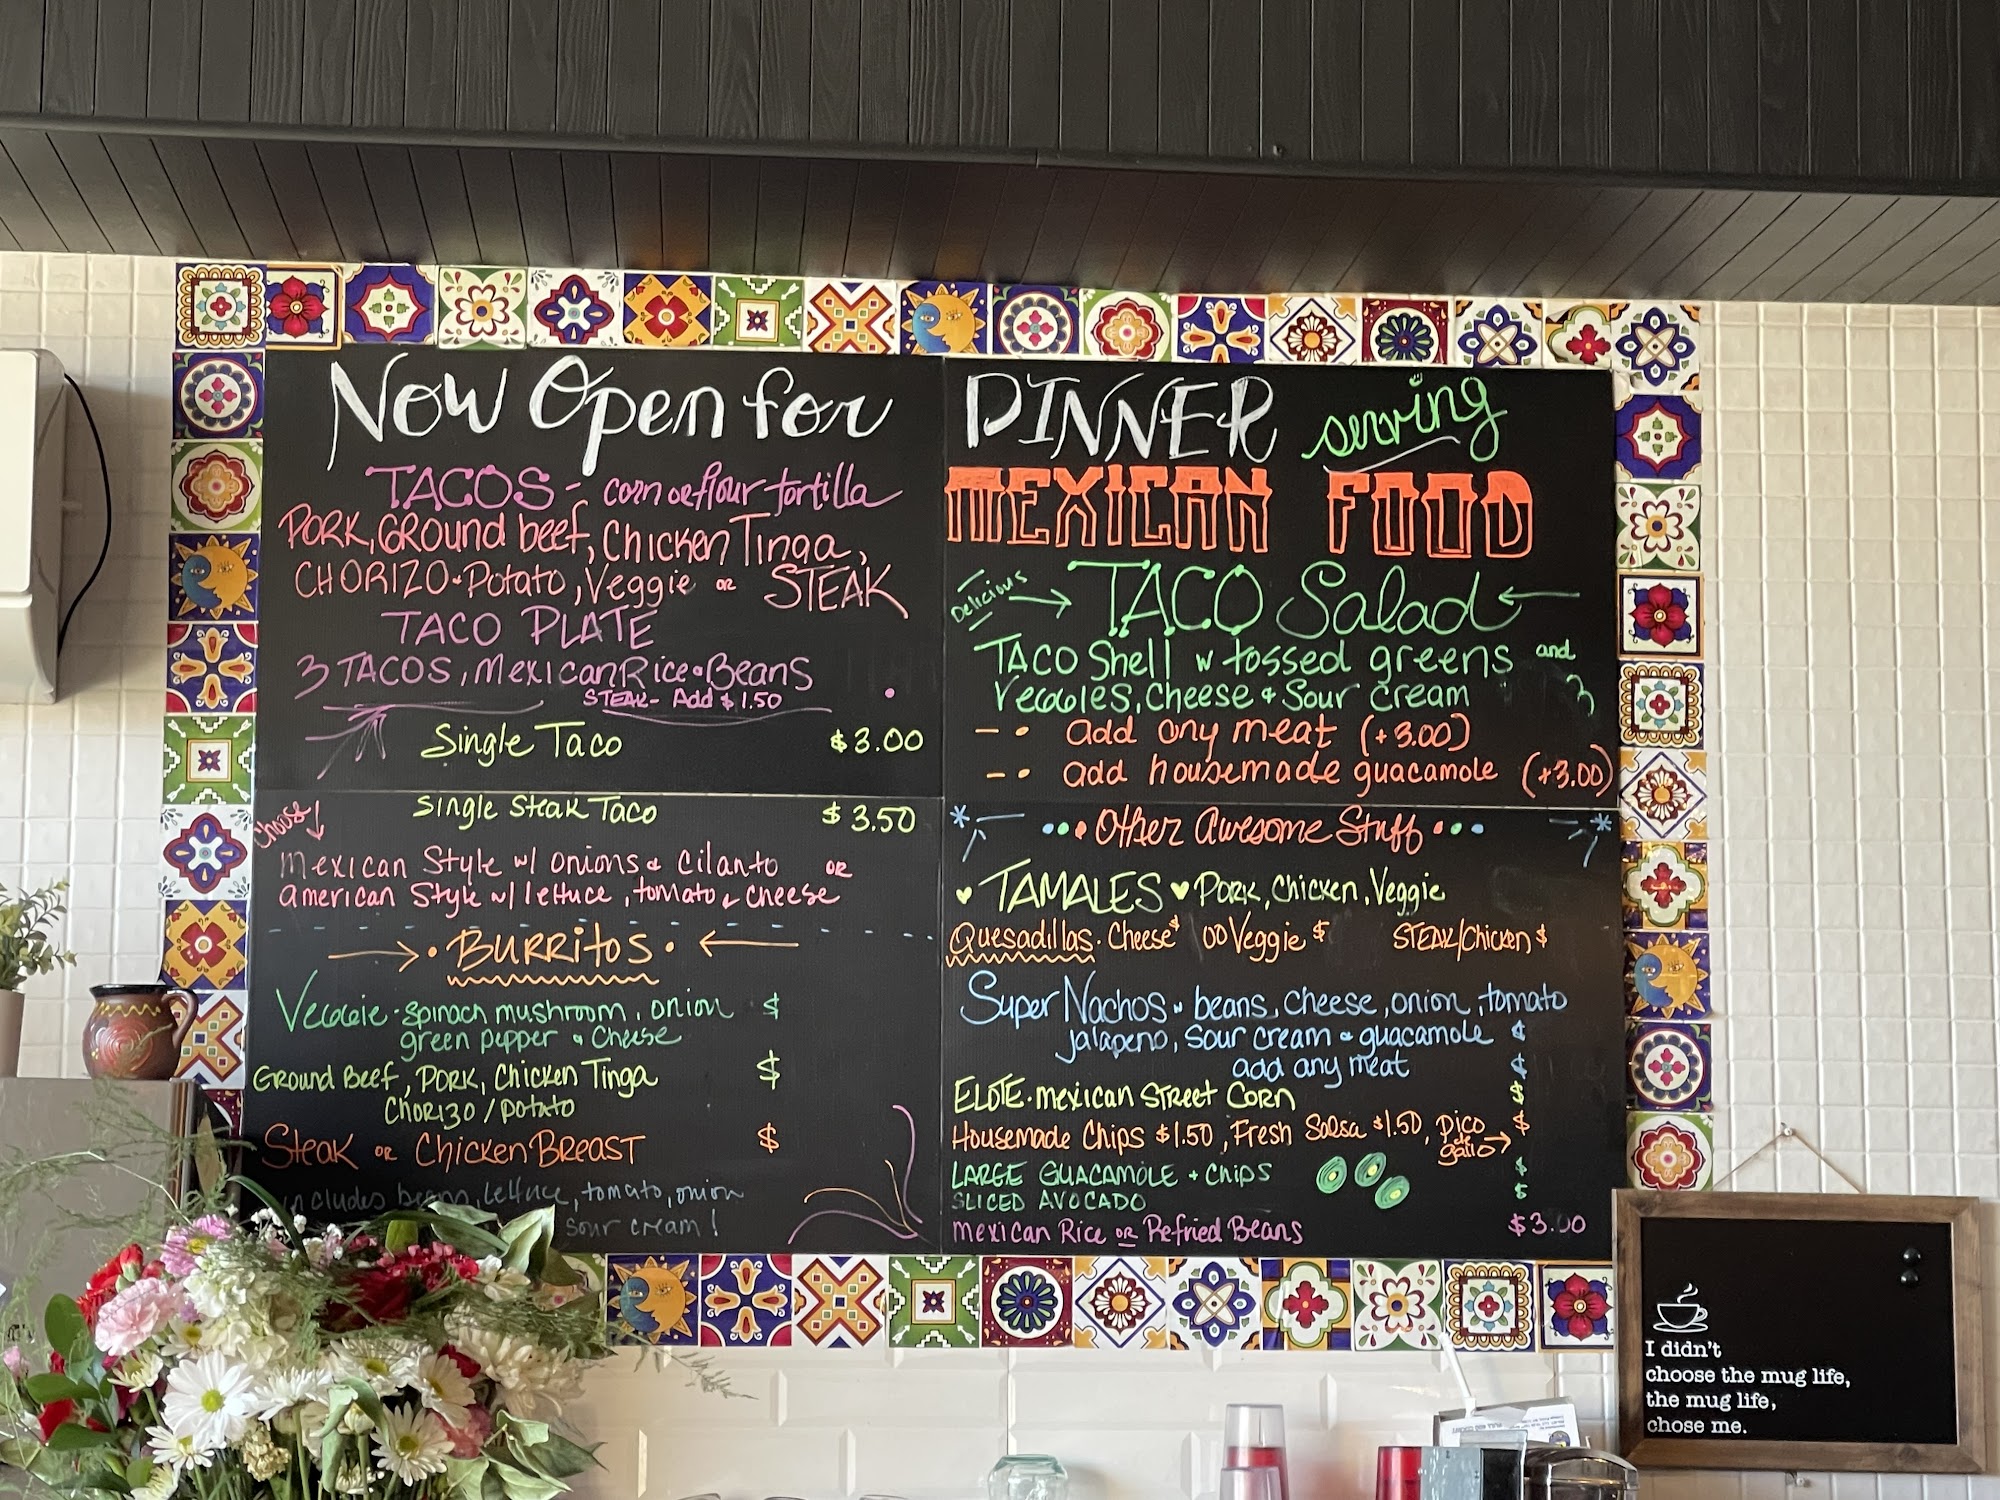 Now Open for
TACOS - corn or flour tortilla
PORK, GROUND beef, CHICKEN Tinga,
CHORIZO & Potato, Veggie OR STEAK
TACO PLATE
3 TACOS, Mexican Rice & Beans
STEAK - Add $1.50
Single Taco $3.00
Single Steak Taco $3.50
Choose
Mexican Style w/ onions & cilanto OR
American Style w/ lettuce, tomato & cheese
BURRITOS
Veggie - spinach mushroom, onion $
green pepper & cheese
GROUND BEEF, PORK, Chicken Tinga $
CHORIZO / potato
Steak OR Chicken BREAST $
includes beans, lettuce, tomato, onion
sour cream!
DINNER serving
MEXICAN FOOD
Delicious TACO Salad
TACO Shell w tossed greens and
Veggies, Cheese & Sour cream
- • add any meat (+3.00)
- • add housemade guacamole (+3.00)
Other Awesome Stuff
TAMALES PORK, Chicken, Veggie
Quesadillas • Cheese $ 00 Veggie $ STEAK/Chicken $
Super Nachos w beans, cheese, onion, tomato
jalapeno, sour cream & guacamole $
add any meat $
ELOTE • mexican STREET CORN $
Housemade Chips $1.50, Fresh Salsa $1.50, pico $
de gallo
LARGE GUACAMOLE + Chips $
SLICED AVOCADO $
mexican Rice OR Refried Beans $3.00
I didn't
choose the mug life,
the mug life,
chose me.